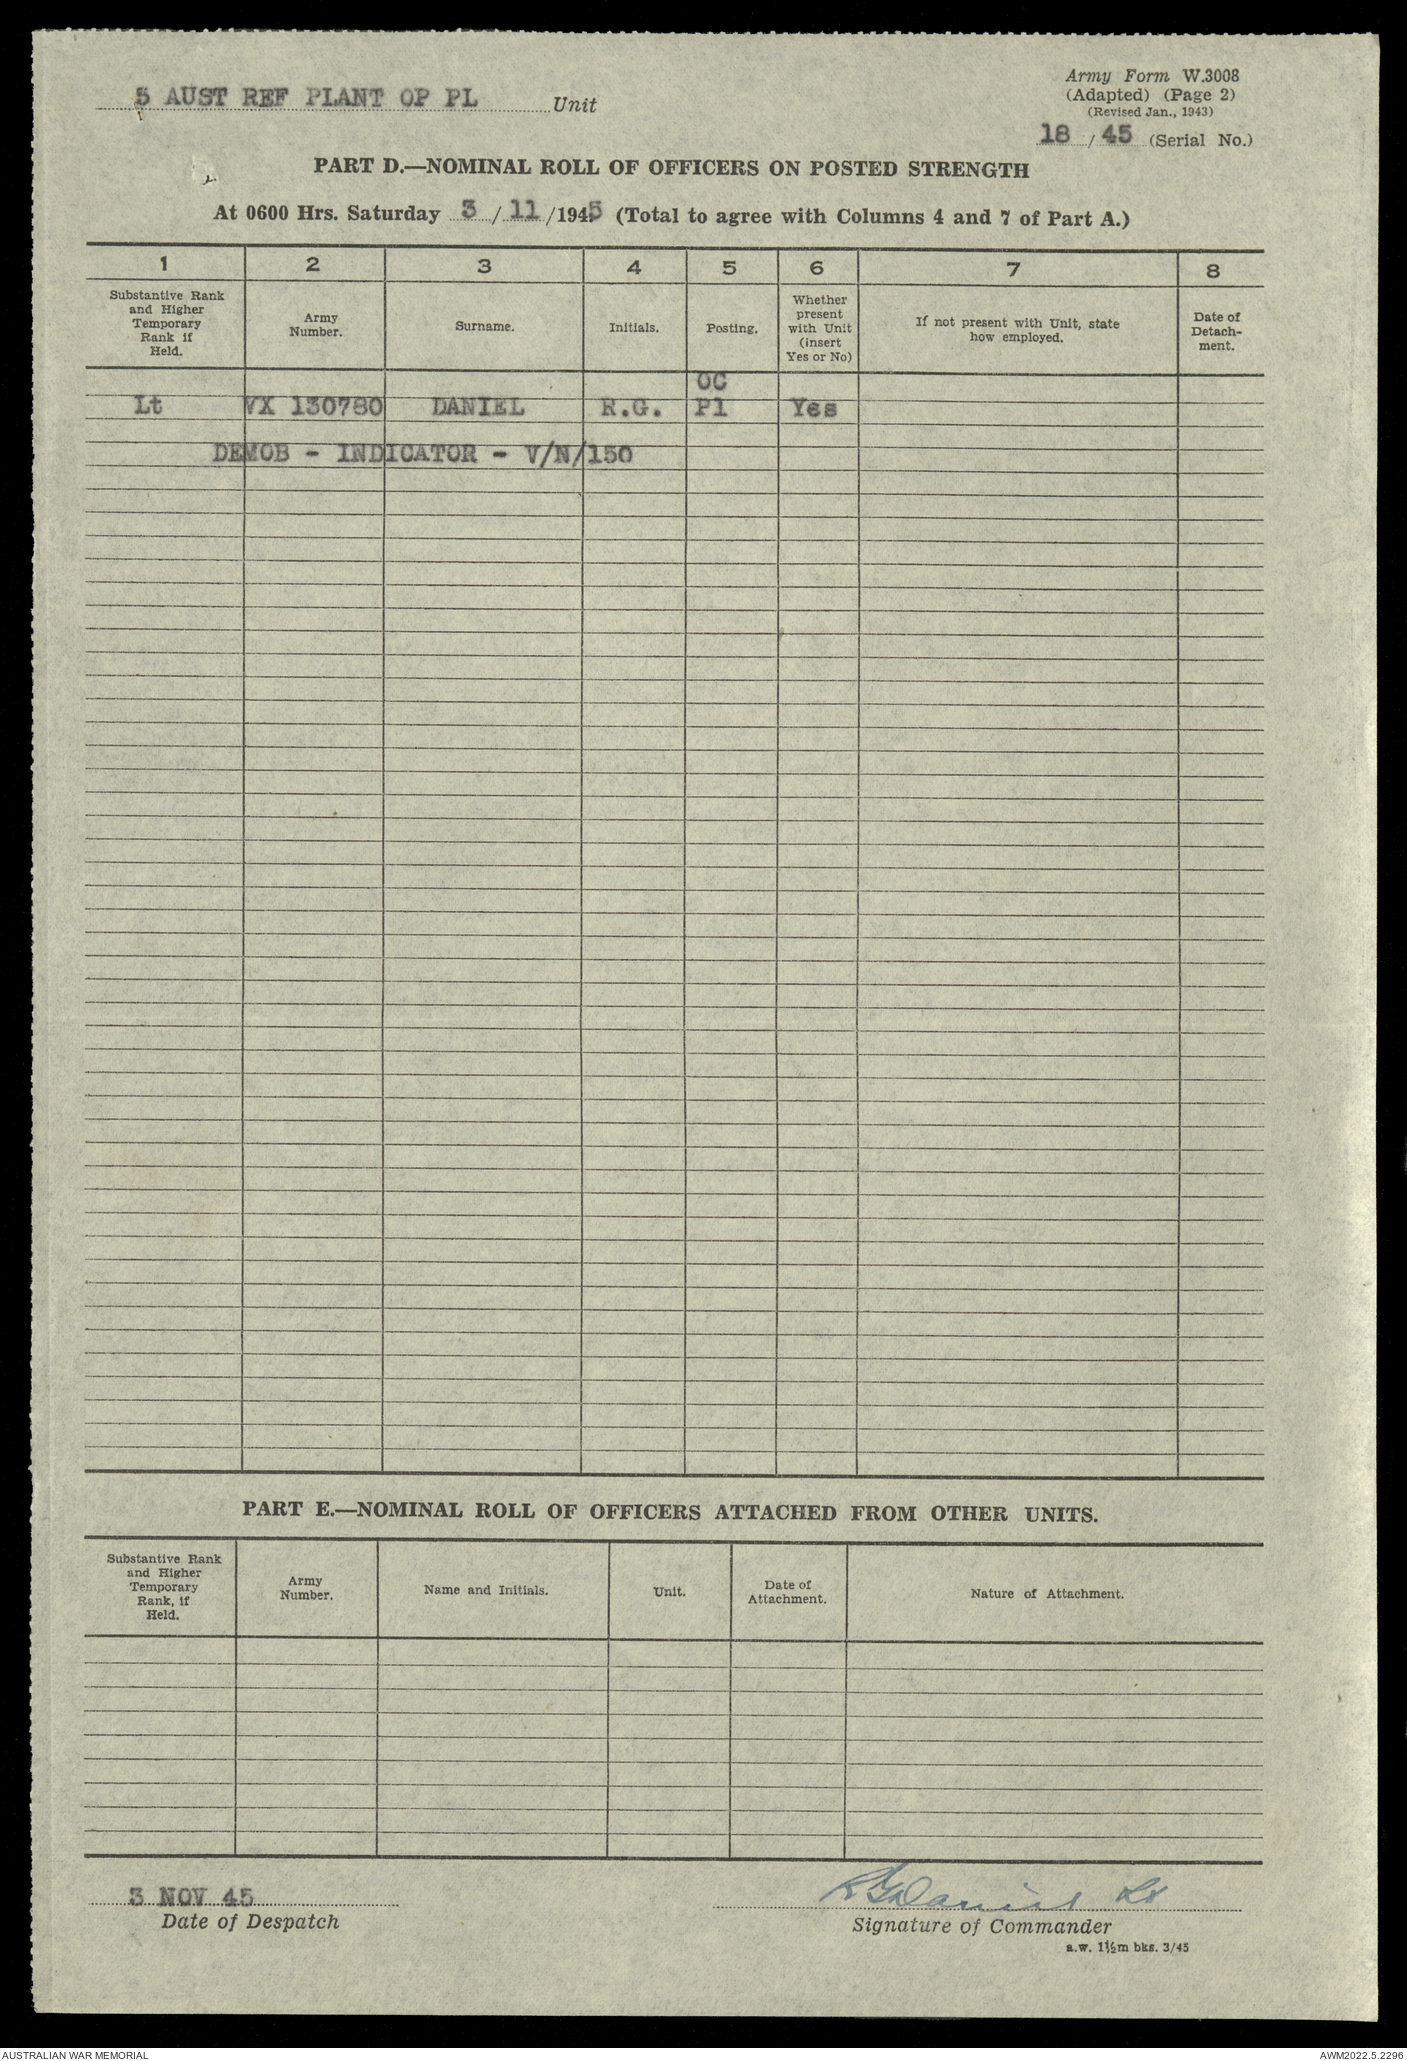 5 AUST REF PLANT OP PL Unit
Army Form W.3008
(Adapted) (Page 2)
(Revised Jan., 1943)
18 / 45 (Serial No.)
PART D.—NOMINAL ROLL OF OFFICERS ON POSTED STRENGTH
At 0600 Hrs. Saturday 3 / 11 /1945 (Total to agree with Columns 4 and 7 of Part A.)
1 2 3 4 5 6 7 8
Substantive Rank and Higher Temporary Rank if Held.
Army Number.
Surname.
Initials.
Posting.
Whether present with Unit (insert Yes or No)
If not present with Unit, state how employed.
Date of Detach-ment.
OC
Lt VX 130780 DANIEL R.G. Pl Yes
DEMOB - INDICATOR - V/N/150
PART E.—NOMINAL ROLL OF OFFICERS ATTACHED FROM OTHER UNITS.
Substantive Rank and Higher Temporary Rank, if Held.
Army Number.
Name and Initials.
Unit.
Date of Attachment.
Nature of Attachment.
3 NOV 45
Date of Despatch
RGDaniel Lt
Signature of Commander
a.w. 1½m bks. 3/45
AUSTRALIAN WAR MEMORIAL
AWM2022.5.2296